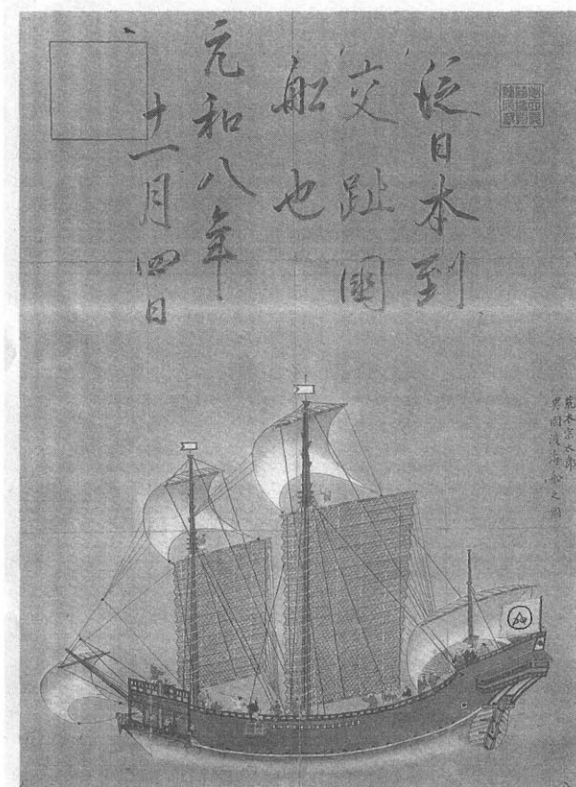 従日本到
交趾國
船也
元和八年
十一月四日
荒木宗太郎
異国渡海船之図